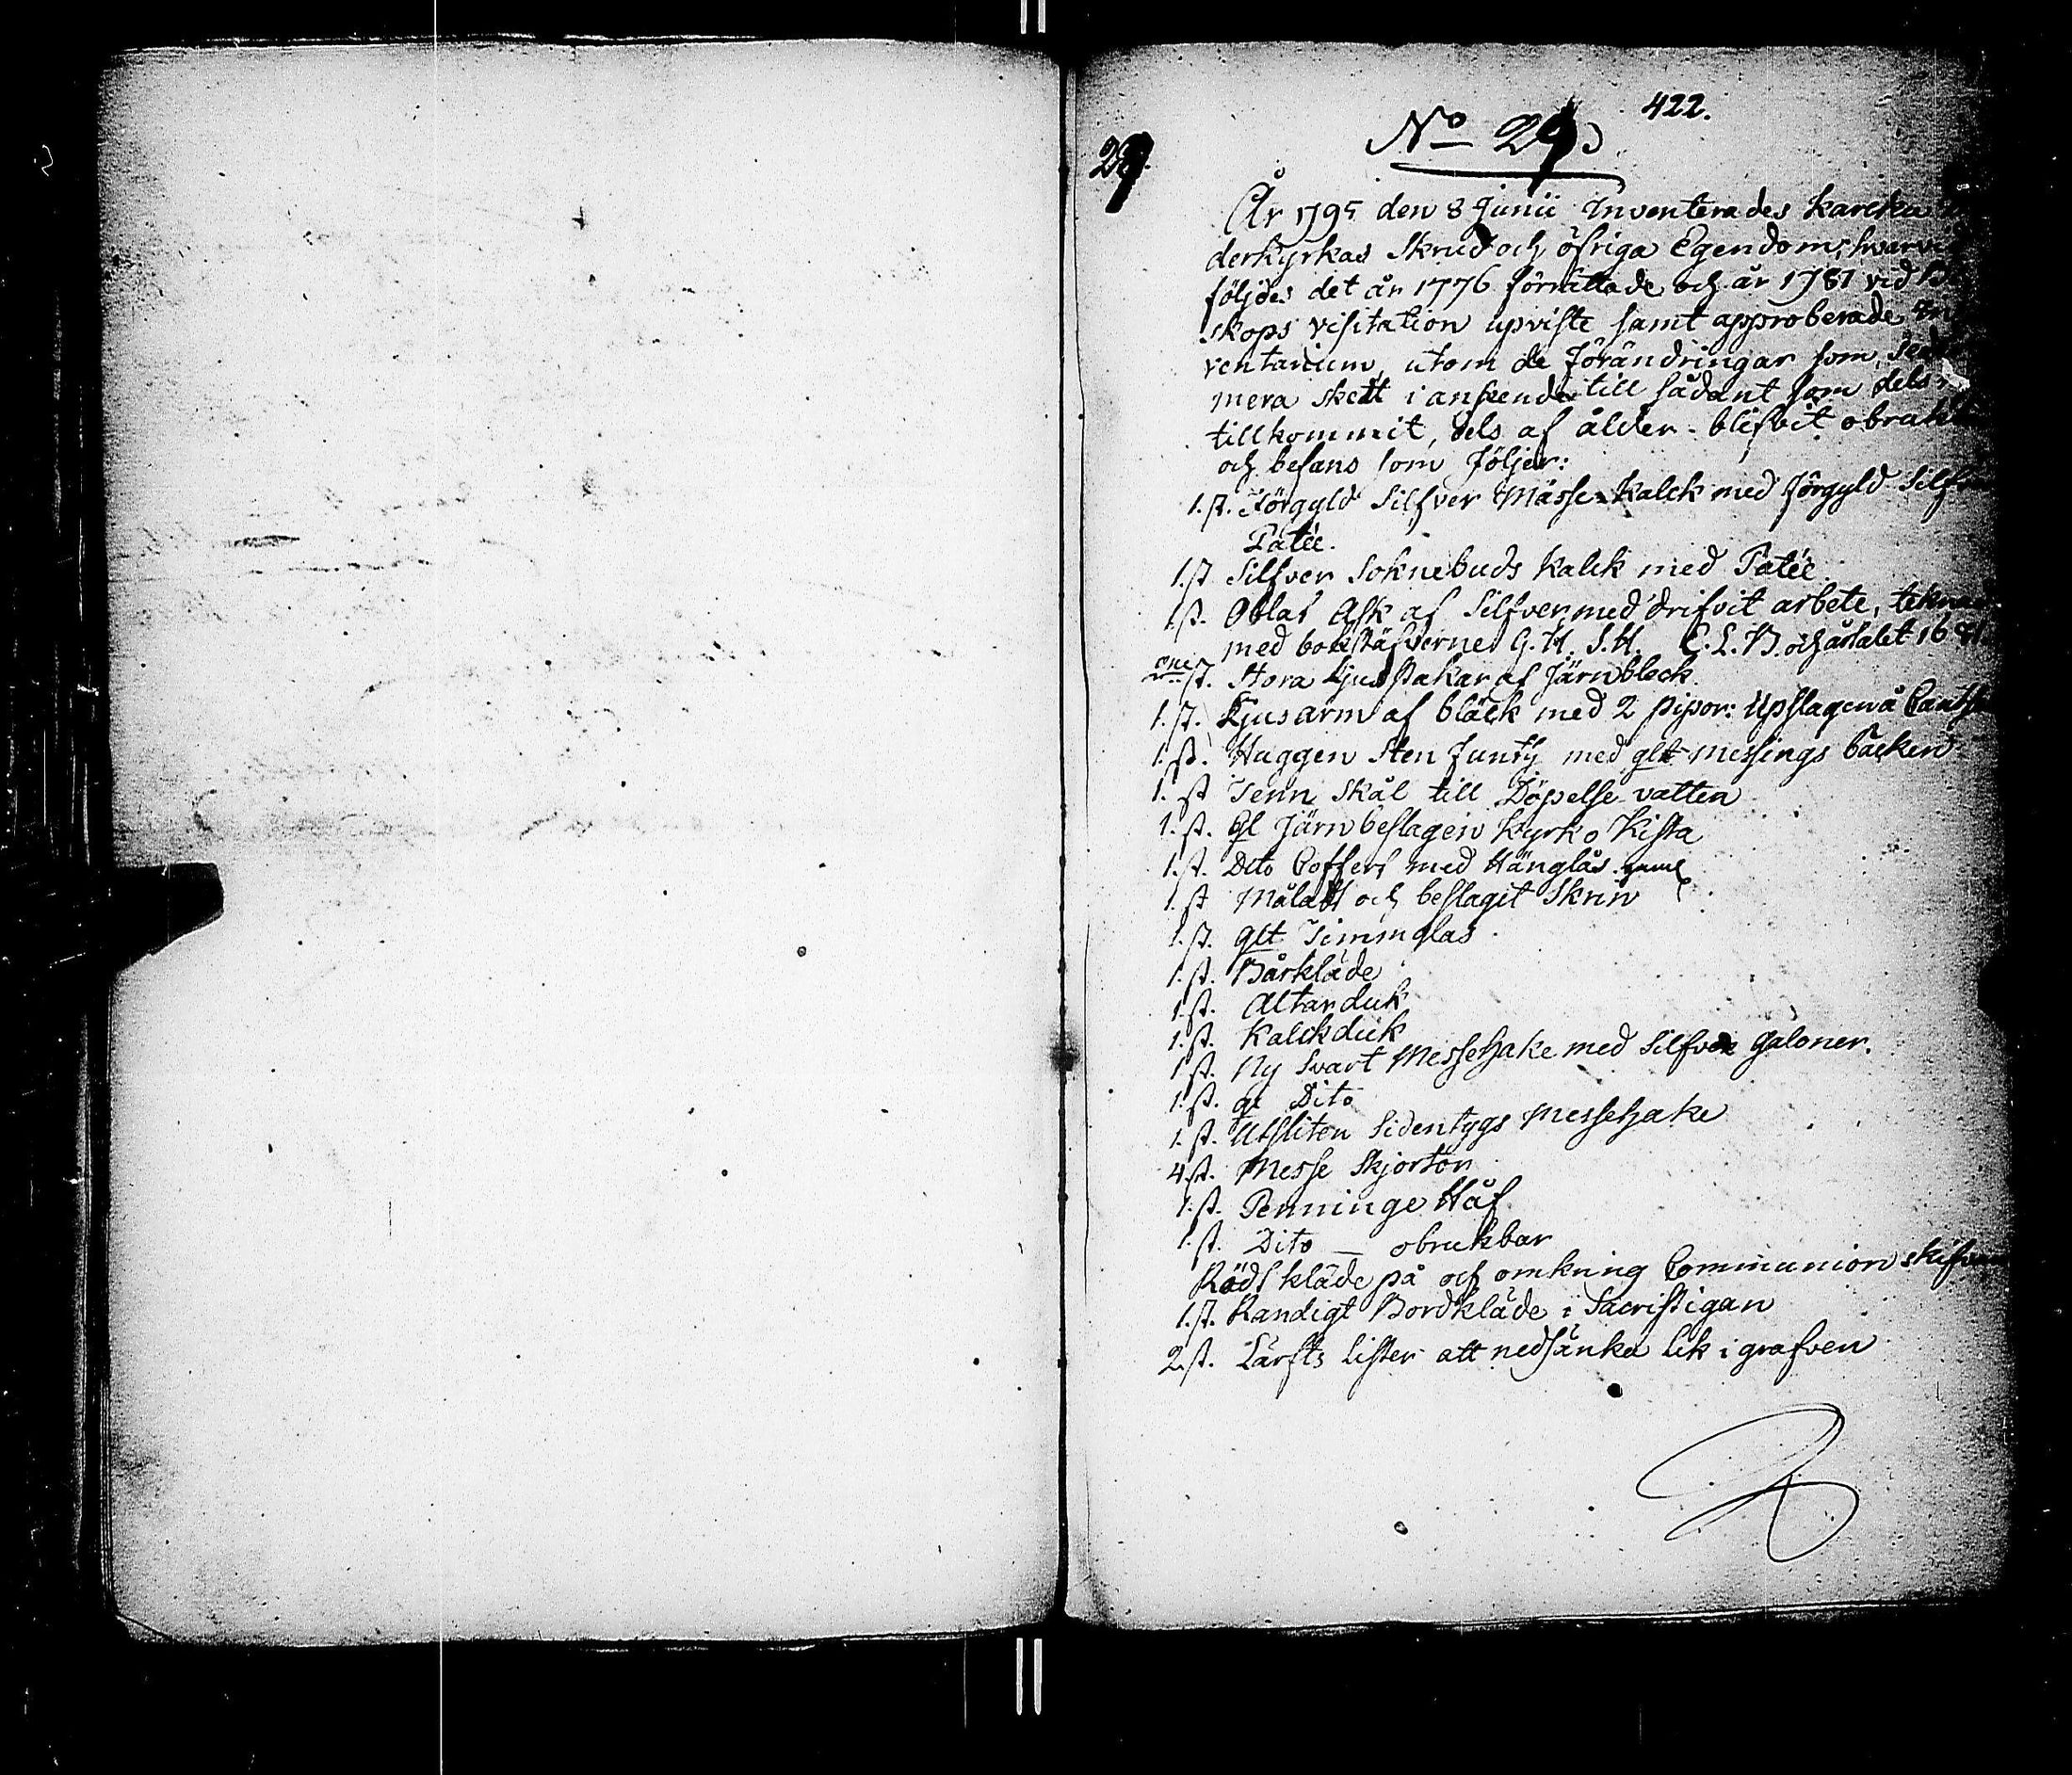 422.
No 29
29.
År 1795 den 8 Junii Inventerades Karcku
derkyrkas Skrud och öfriga Egendom, hvarvid
följdes det år 1776 förrättade och år 1781 vid Bi
skops visitation upviste samt approberade In
ventarium, utom de förändringar som seder
mera skedt i anseende till sådant som dels
tillkommit, dels af ålder blifvit obrukb
och befans som följer:
1.st. Förgyld Silfver Mässe-Kalck med förgyld Silfver
Patée.
1.st Silfver Soknebuds Kalck med Patée
1.st. Oblat Ask af Silfver med drifvit arbete, teknad
med bokstäfverne G. H. S. H. C. L. B. och årtalet 16
st. Stora Ljusstakar af Järnbleck.
1.st. Ljusarm af bläck med 2 pipor: Upslagen å
1.st. Huggen Sten Funt med glt messings Bäcken
1. st Tenn Skål till Döpelse vatten
1.st. Gl Järnbeslagen Kyrko Kista
1.st. Dito Coffert med Hänglås. gaml
1.st Måladt och beslagit Skrin
1.st. glt Timmglas
1.st. Bårkläde
1.st. Altarduk
1.st. Kalckduk
1 st. Ny Svart Messehake med Silfver Galoner.
1.st. gl Dito
1.st. Utsliten Sidentygs Messehake
4.st. Messe Skjortor
1.st. Penninge Håf
1.st. Dito — obrukbar
Rödt kläde på och omkring Communion skifvan
1.st. Randigt Bordkläde i Sacristigan
2.st. Lärfts lister att nedsänka lik i grafven